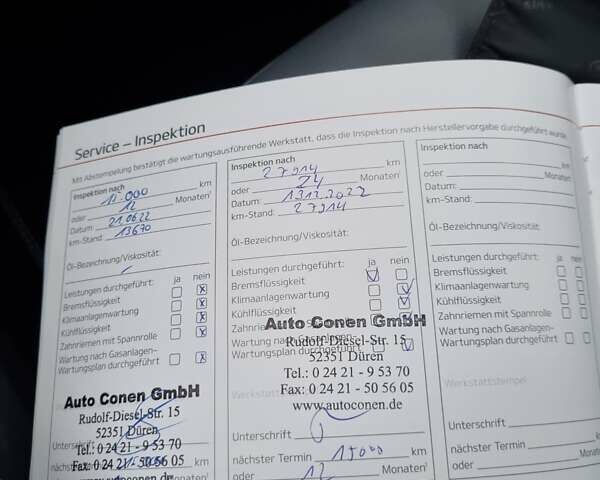 Service – Inspektion
Mit Abstempelung bestätigt die wartungsausführende Werkstatt, dass die Inspektion nach Herstellervorgabe durchgeführt wurde.
Inspektion nach
15.000 km
oder 12 Monaten¹
Datum: 21.06.22
km-Stand: 13670
Öl-Bezeichnung/Viskosität:
Leistungen durchgeführt: ja nein
Bremsflüssigkeit x
Klimaanlagenwartung x
Kühlflüssigkeit x
Zahnriemen mit Spannrolle x
Wartung nach Gasanlagen-
Wartungsplan durchgeführt x
Auto Conen GmbH
Rudolf-Diesel-Str. 15
52351 Düren
Tel.: 0 24 21 - 9 53 70
Fax: 0 24 21 - 50 56 05
Unterschrift
nächster km
Inspektion nach
27914 km
oder 24 Monaten¹
Datum: 13.12.2022
km-Stand: 27914
Öl-Bezeichnung/Viskosität:
Leistungen durchgeführt: ja nein
Bremsflüssigkeit
Klimaanlagenwartung
Kühlflüssigkeit
Zahnriemen
Auto Conen GmbH
Wartung nach
Wartungsplan durchgeführt
Rudolf-Diesel-Str. 15
52351 Düren
Tel.: 0 24 21 - 9 53 70
Fax: 0 24 21 - 50 56 05
www.autoconen.de
Unterschrift
nächster Termin 15000 km
oder 12 Monaten¹
Inspektion nach
km
oder Monaten¹
Datum:
km-Stand:
Öl-Bezeichnung/Viskosität:
Leistungen durchgeführt: ja nein
Bremsflüssigkeit
Klimaanlagenwartung
Kühlflüssigkeit
Zahnriemen mit Spannrolle
Wartung nach Gasanlagen-
Wartungsplan durchgeführt
Werkstattstempel
Unterschrift
nächster Termin km
oder Monaten¹